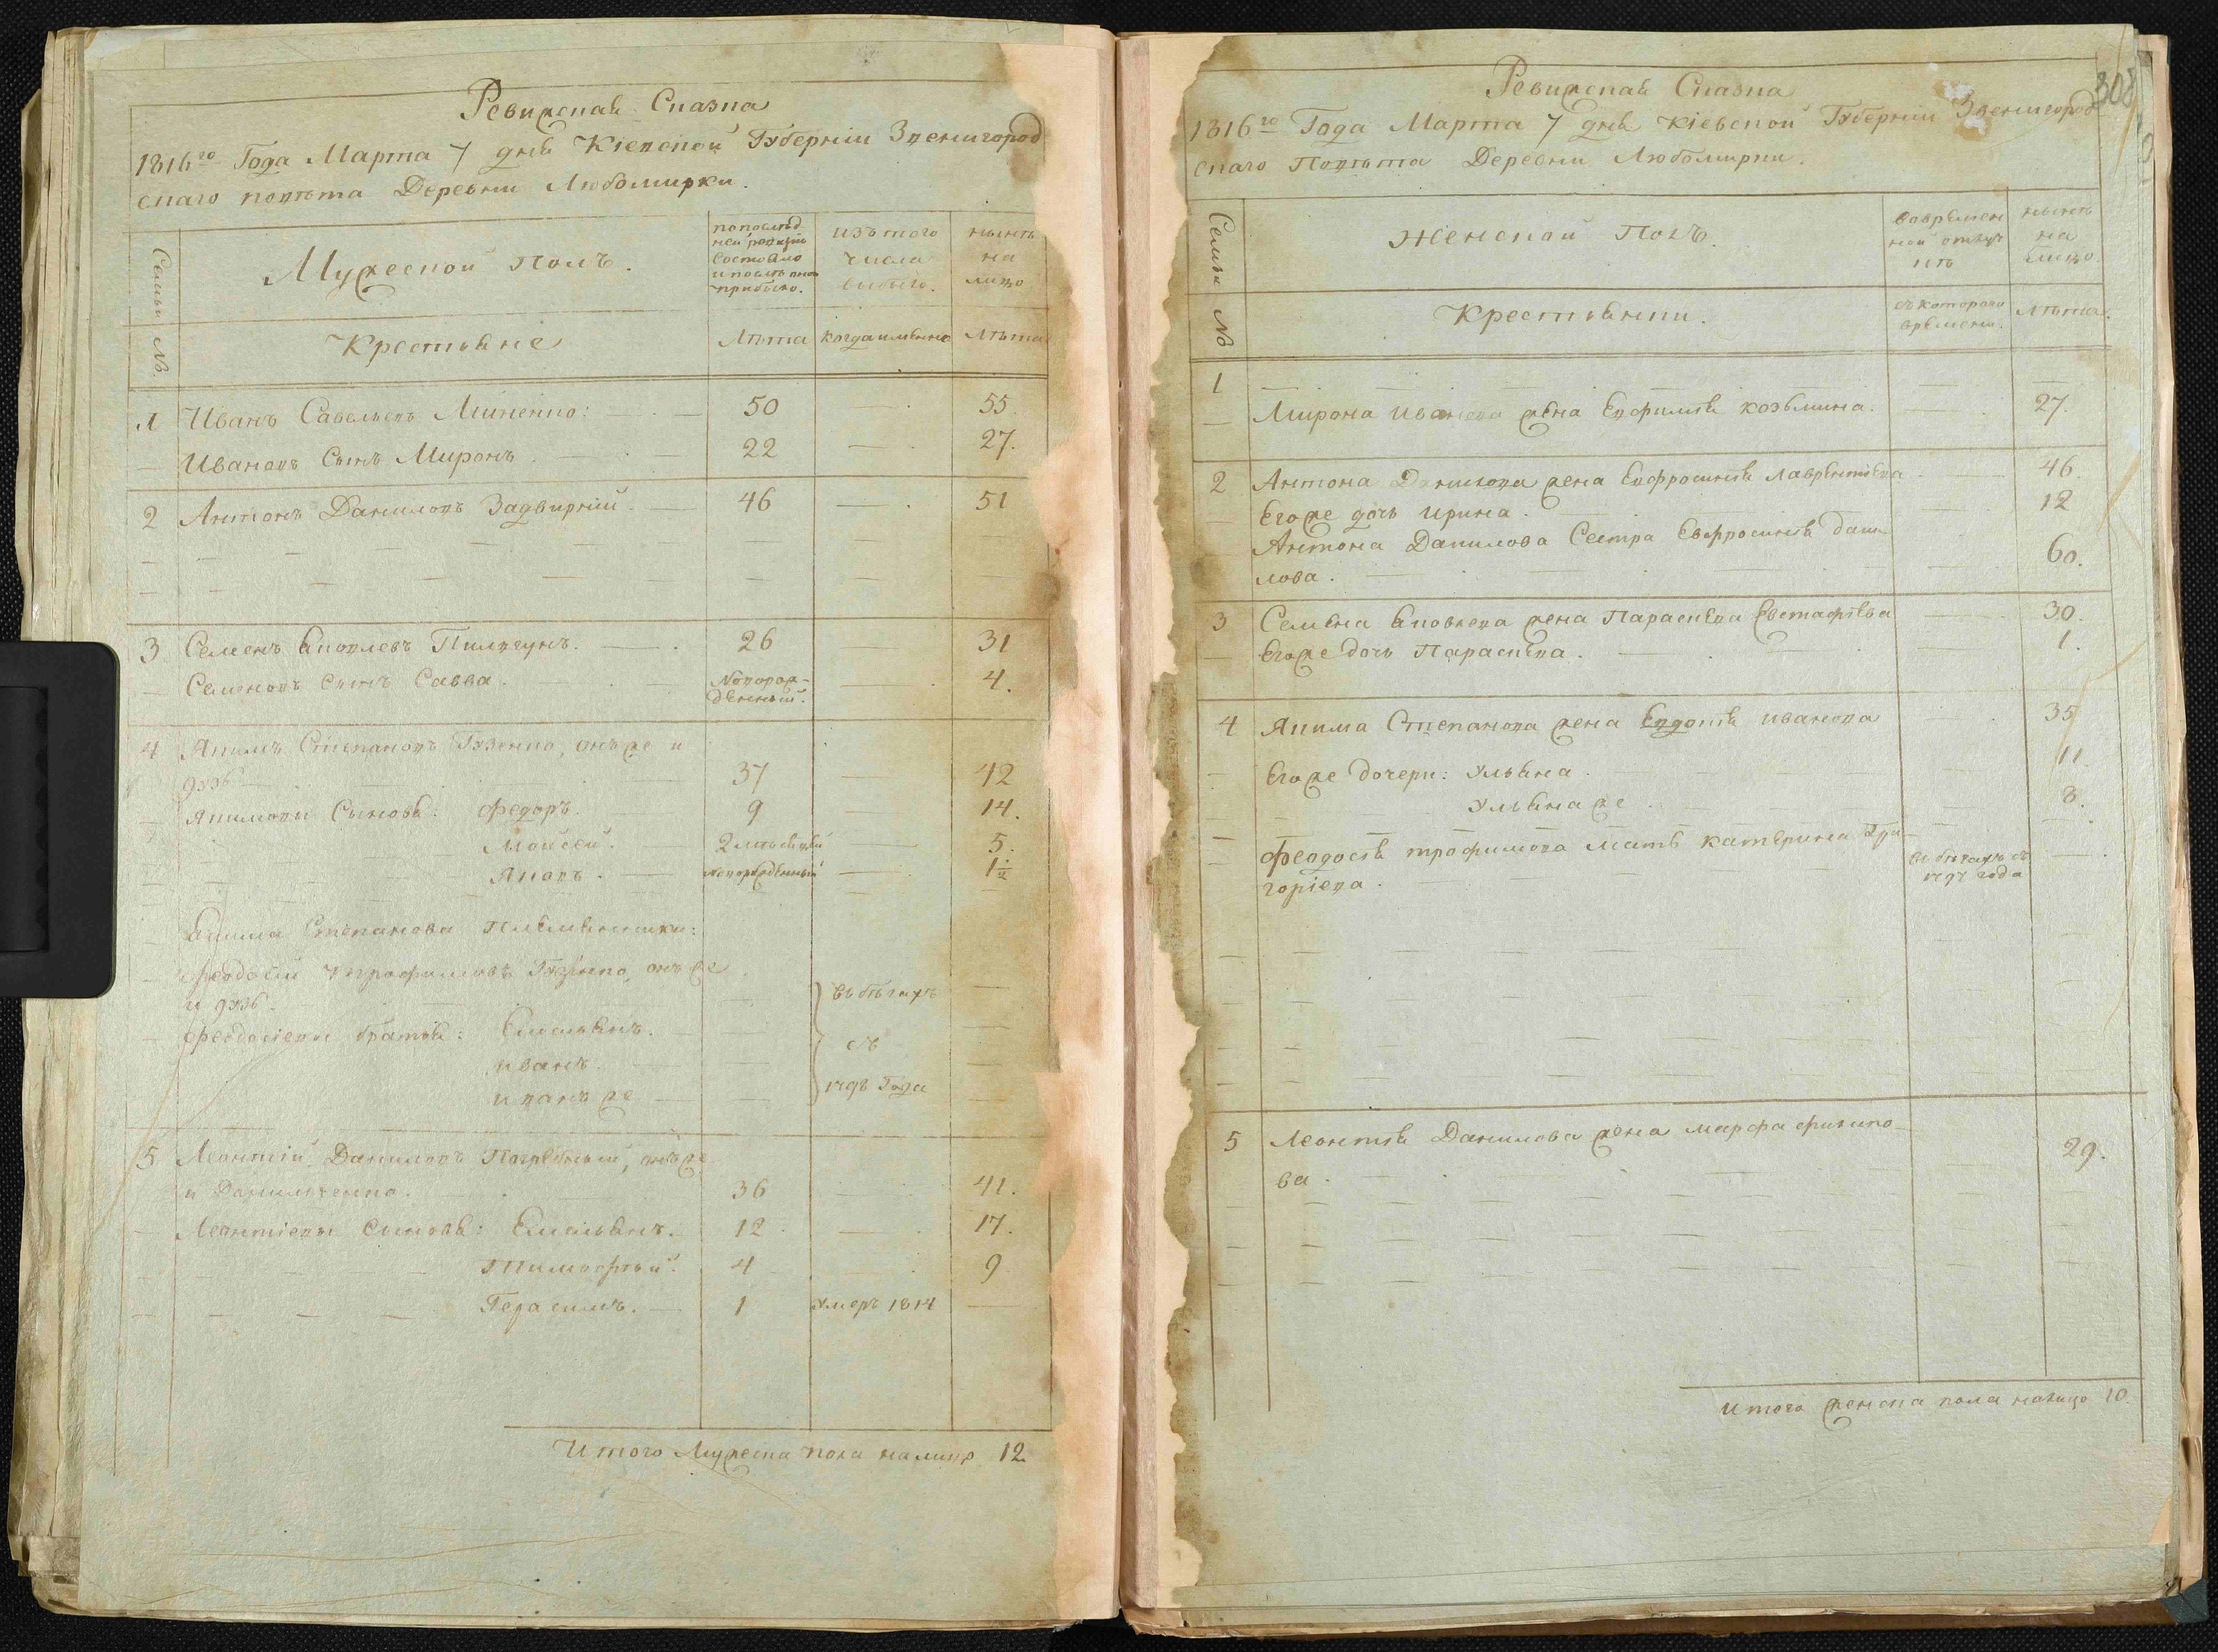 Ревижская Сказка
1816го Года Марта 7 дня Кіевской Губерніи Звенигород
скаго повѣта Деревни Любомирки.
Семьи №
Мужеской полъ.
по послѣд
ней ревизіи
состояло
и послѣ оной
прибыло.
изъ того
числа
выбыло.
нынѣ
на
лицо
Крестьяне
Лѣта
когда имянно
Лѣта
1 Иванъ Савельевъ Миненко: 50 55.
Ивановъ Сынъ Миронъ. 22 27.
2 Антонъ Даниловъ Задвирній. 46 51
3 Семенъ Яковлевъ 26 31
Семеновъ сынъ Савва. Новорож-
денный. 4.
4 Якимъ Степановъ Гузенко, онъ же и
37 42
Якимовы Сыновя: Федоръ. 9 14.
Мойсей. 2 5.
Яковъ. новорожденный 1½
Якима Степанова Племянники:
Феодосій Трофимовъ Гузенко, онъ же
и
Феодосіевы братья: Емельянъ.
иванъ.
иванъ же
въ бѣгахъ
съ
Года
5 Леонтій Даниловъ Погребный, онъ же
и Данилченко. 36 41.
Леонтіевы сыновя: Емельянъ. 12 17.
Тимофѣй. 4 9
Герасимъ. 1 умеръ 1814
Итого Мужеска пола налицо 12
308
Ревижская Сказка
1816го Года Марта 7 дня Кіевской Губерніи Звенигород
скаго Повѣта Деревни Любомирки.
Семьи №
Женской Полъ.
во времен
ной отлуч
кѣ
нынѣ
на
лицо.
Крестьянки.
съ котораго
времени.
Лѣта.
1
Мирона Иванова жена Евфимія козьмина. 27.
2 Антона Данилова жена Евфросинія лаврентіева 46.
Его же дочь ирина. 12
Антона Данилова Сестра Евфросинія дани
лова. 60.
3 Семена Яковлева жена Параскева Евстафіева 30.
Его же дочь Параскева. 1.
4 Якима Степанова жена Евдокія иванова 35
Его же дочери: Ульяна. 11.
Ульяна же 8.
Феодосія трофимова мать катерина Гри
горіева.
въ бѣгахъ съ
года
5 Леонтія Данилова жена марфа филипо
ва. 29.
Итого женска пола налицо 10.